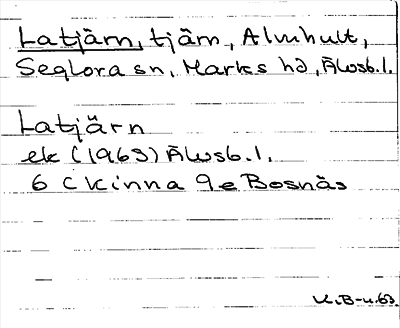 Latjärn, tjärn, Älvhult,
Seglora sn, Marks hd, Älvsb.l.
Latjärn
ek (1963) Älvsb.l.
6 C Kinna 9e Bosnäs
K.B-u.63